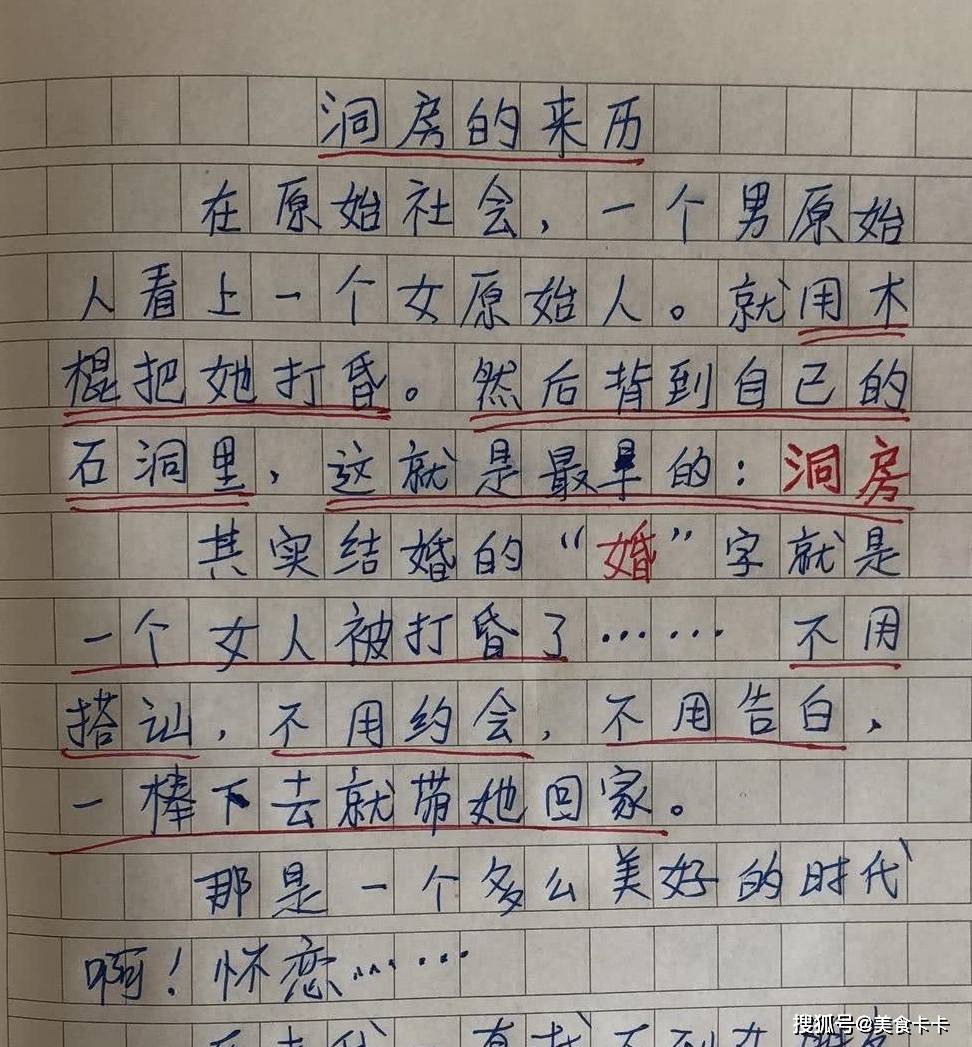 洞房的来历
在原始社会，一个男原始
人看上一个女原始人。就用木
棍把她打昏。然后背到自己的
石洞里，这就是最早的：洞房
其实结婚的“婚”字就是
一个女人被打昏了……不用
搭讪，不用约会，不用告白，
一棒下去就带她回家。
那是一个多么美好的时代
啊！怀恋……
搜狐号@美食卡卡